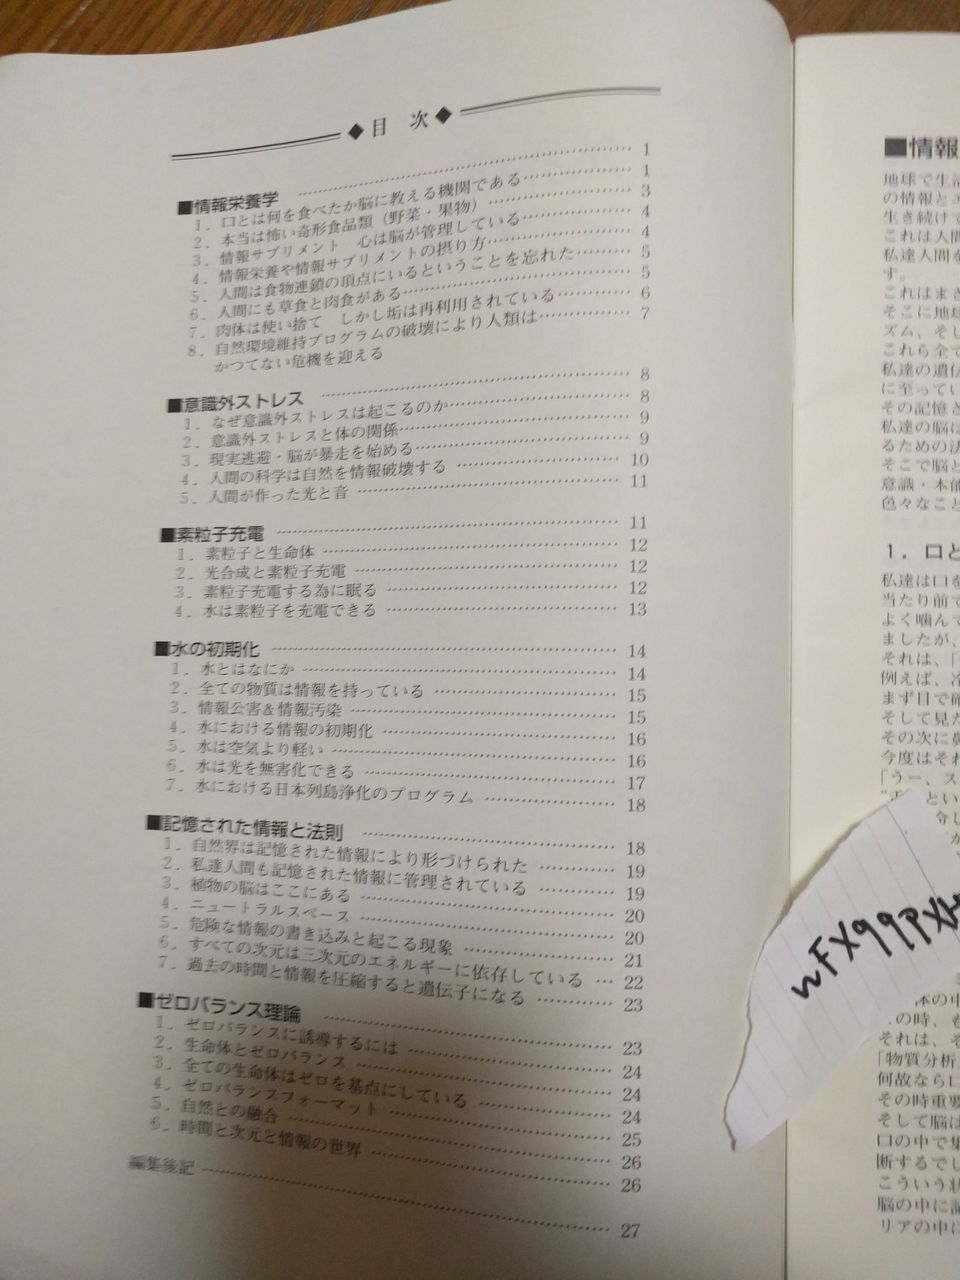 ◆目 次◆
■情報栄養学 …… 1
1．口とは何を食べたか脳に教える機関である …… 1
2．本当は怖い奇形食品類（野菜・果物） …… 3
3．情報サプリメント 心は脳が管理している …… 4
4．情報栄養や情報サプリメントの摂り方 …… 4
5．人間は食物連鎖の頂点にいるということを忘れた …… 5
6．人間にも草食と肉食がある …… 5
7．肉体は使い捨て しかし垢は再利用されている …… 6
8．自然環境維持プログラムの破壊により人類は …… 7
かつてない危機を迎える
■意識外ストレス …… 8
1．なぜ意識外ストレスは起こるのか …… 8
2．意識外ストレスと体の関係 …… 9
3．現実逃避・脳が暴走を始める …… 9
4．人間の科学は自然を情報破壊する …… 10
5．人間が作った光と音 …… 11
■素粒子充電 …… 11
1．素粒子と生命体 …… 12
2．光合成と素粒子充電 …… 12
3．素粒子充電する為に眠る …… 12
4．水は素粒子を充電できる …… 13
■水の初期化 …… 14
1．水とはなにか …… 14
2．全ての物質は情報を持っている …… 15
3．情報公害＆情報汚染 …… 15
4．水における情報の初期化 …… 16
5．水は空気より軽い …… 16
6．水は光を無害化できる …… 17
7．水における日本列島浄化のプログラム …… 18
■記憶された情報と法則 …… 18
1．自然界は記憶された情報により形づけられた …… 19
2．私達人間も記憶された情報に管理されている …… 19
3．植物の脳はここにある …… 20
4．ニュートラルスペース …… 20
5．危険な情報の書き込みと起こる現象 …… 21
6．すべての次元は三次元のエネルギーに依存している … 22
7．過去の時間と情報を圧縮すると遺伝子になる …… 23
■ゼロバランス理論 …… 23
1．ゼロバランスに誘導するには …… 24
2．生命体とゼロバランス …… 24
3．全ての生命体はゼロを基点にしている …… 24
4．ゼロバランスフォーマット …… 25
5．自然との融合 …… 26
6．時間と次元と情報の世界 …… 26
編集後記 …… 27
■情報
地球で生活
の情報とエ
生き続けて
これは人間
私達人間を
す。
これはまさ
そこに地球
ズム、そし
これら全て
私達の遺伝
に至ってい
その記憶さ
私達の脳は
るための法
そこで脳と
意識・本能
色々なこと
1．口と
私達は口を
当たり前で
よく噛んで
ましたが、
それは、「
例えば、冷
まず目で確
そして見た
その次に鼻
今度はそれ
「うー、ス
とい
体の中
の時、も
それは、そ
「物質分析
何故なら口
その時重要
そして脳は
口の中で集
断するでし
こういう状
脳の中に記
リアの中に